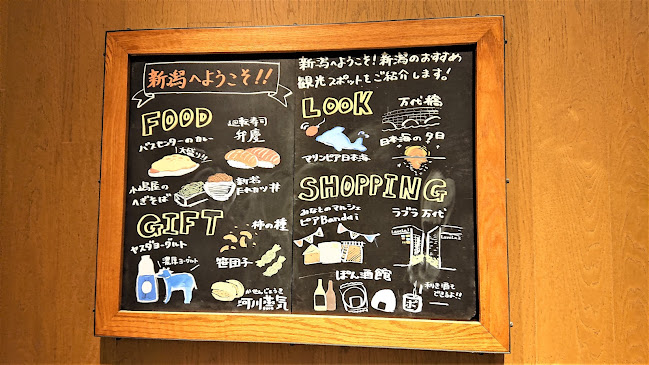 新潟へようこそ!!
FOOD
バスセンターのカレー
大盛り!!
廻転寿司
弁慶
小嶋屋の
へぎそば
新潟
たれカツ丼
GIFT
ヤスダヨーグルト
濃厚ヨーグルト
柿の種
笹団子
かせんじょうき
河川蒸気
新潟へようこそ!新潟のおすすめ
観光スポットをご紹介します!
LOOK
マリンピア日本海
万代橋
日本海の夕日
SHOPPING
みなとのマルシェ
ピアBandai
ラブラ万代
ぽん酒館
利き酒も
できるよ!!